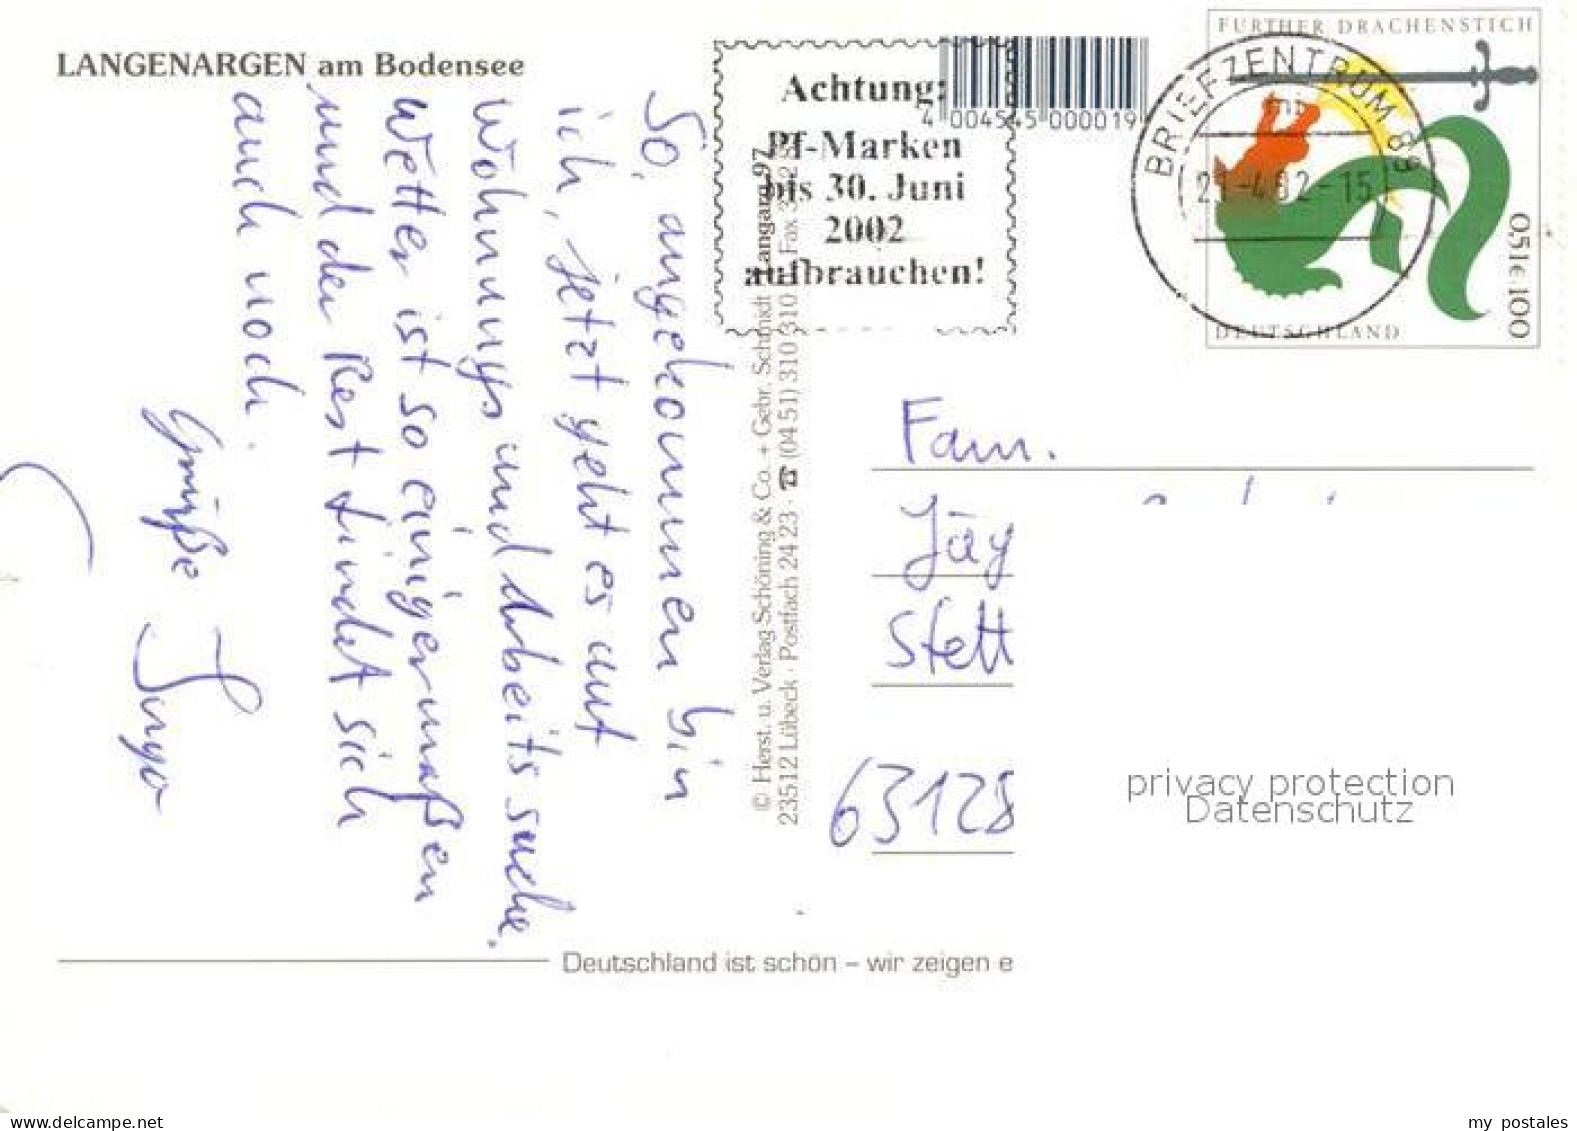 LANGENARGEN am Bodensee
So, angekommen bin
ich, jetzt geht es auf
Wohnungs und Arbeitssuche.
Wetter ist so einigermaßen
und der Rest findet sich
auch noch.
Grüße Ingo
Achtung:
Pf-Marken
bis 30. Juni
2002
aufbrauchen!
4 004545 000019
FURTHER DRACHENSTICH
BRIEFZENTRUM 88
mb
21-4.02-15
0,51€ 100
DEUTSCHLAND
© Herst. u. Verlag Schöning & Co. + Gebr. Schmidt Langarg 97
23512 Lübeck · Postfach 24 23 · ☎ (04 51) 310 310 Fax
Fam.
Jäg
Stett
63128
privacy protection
Datenschutz
Deutschland ist schön – wir zeigen e
www.delcampe.net
my_postales